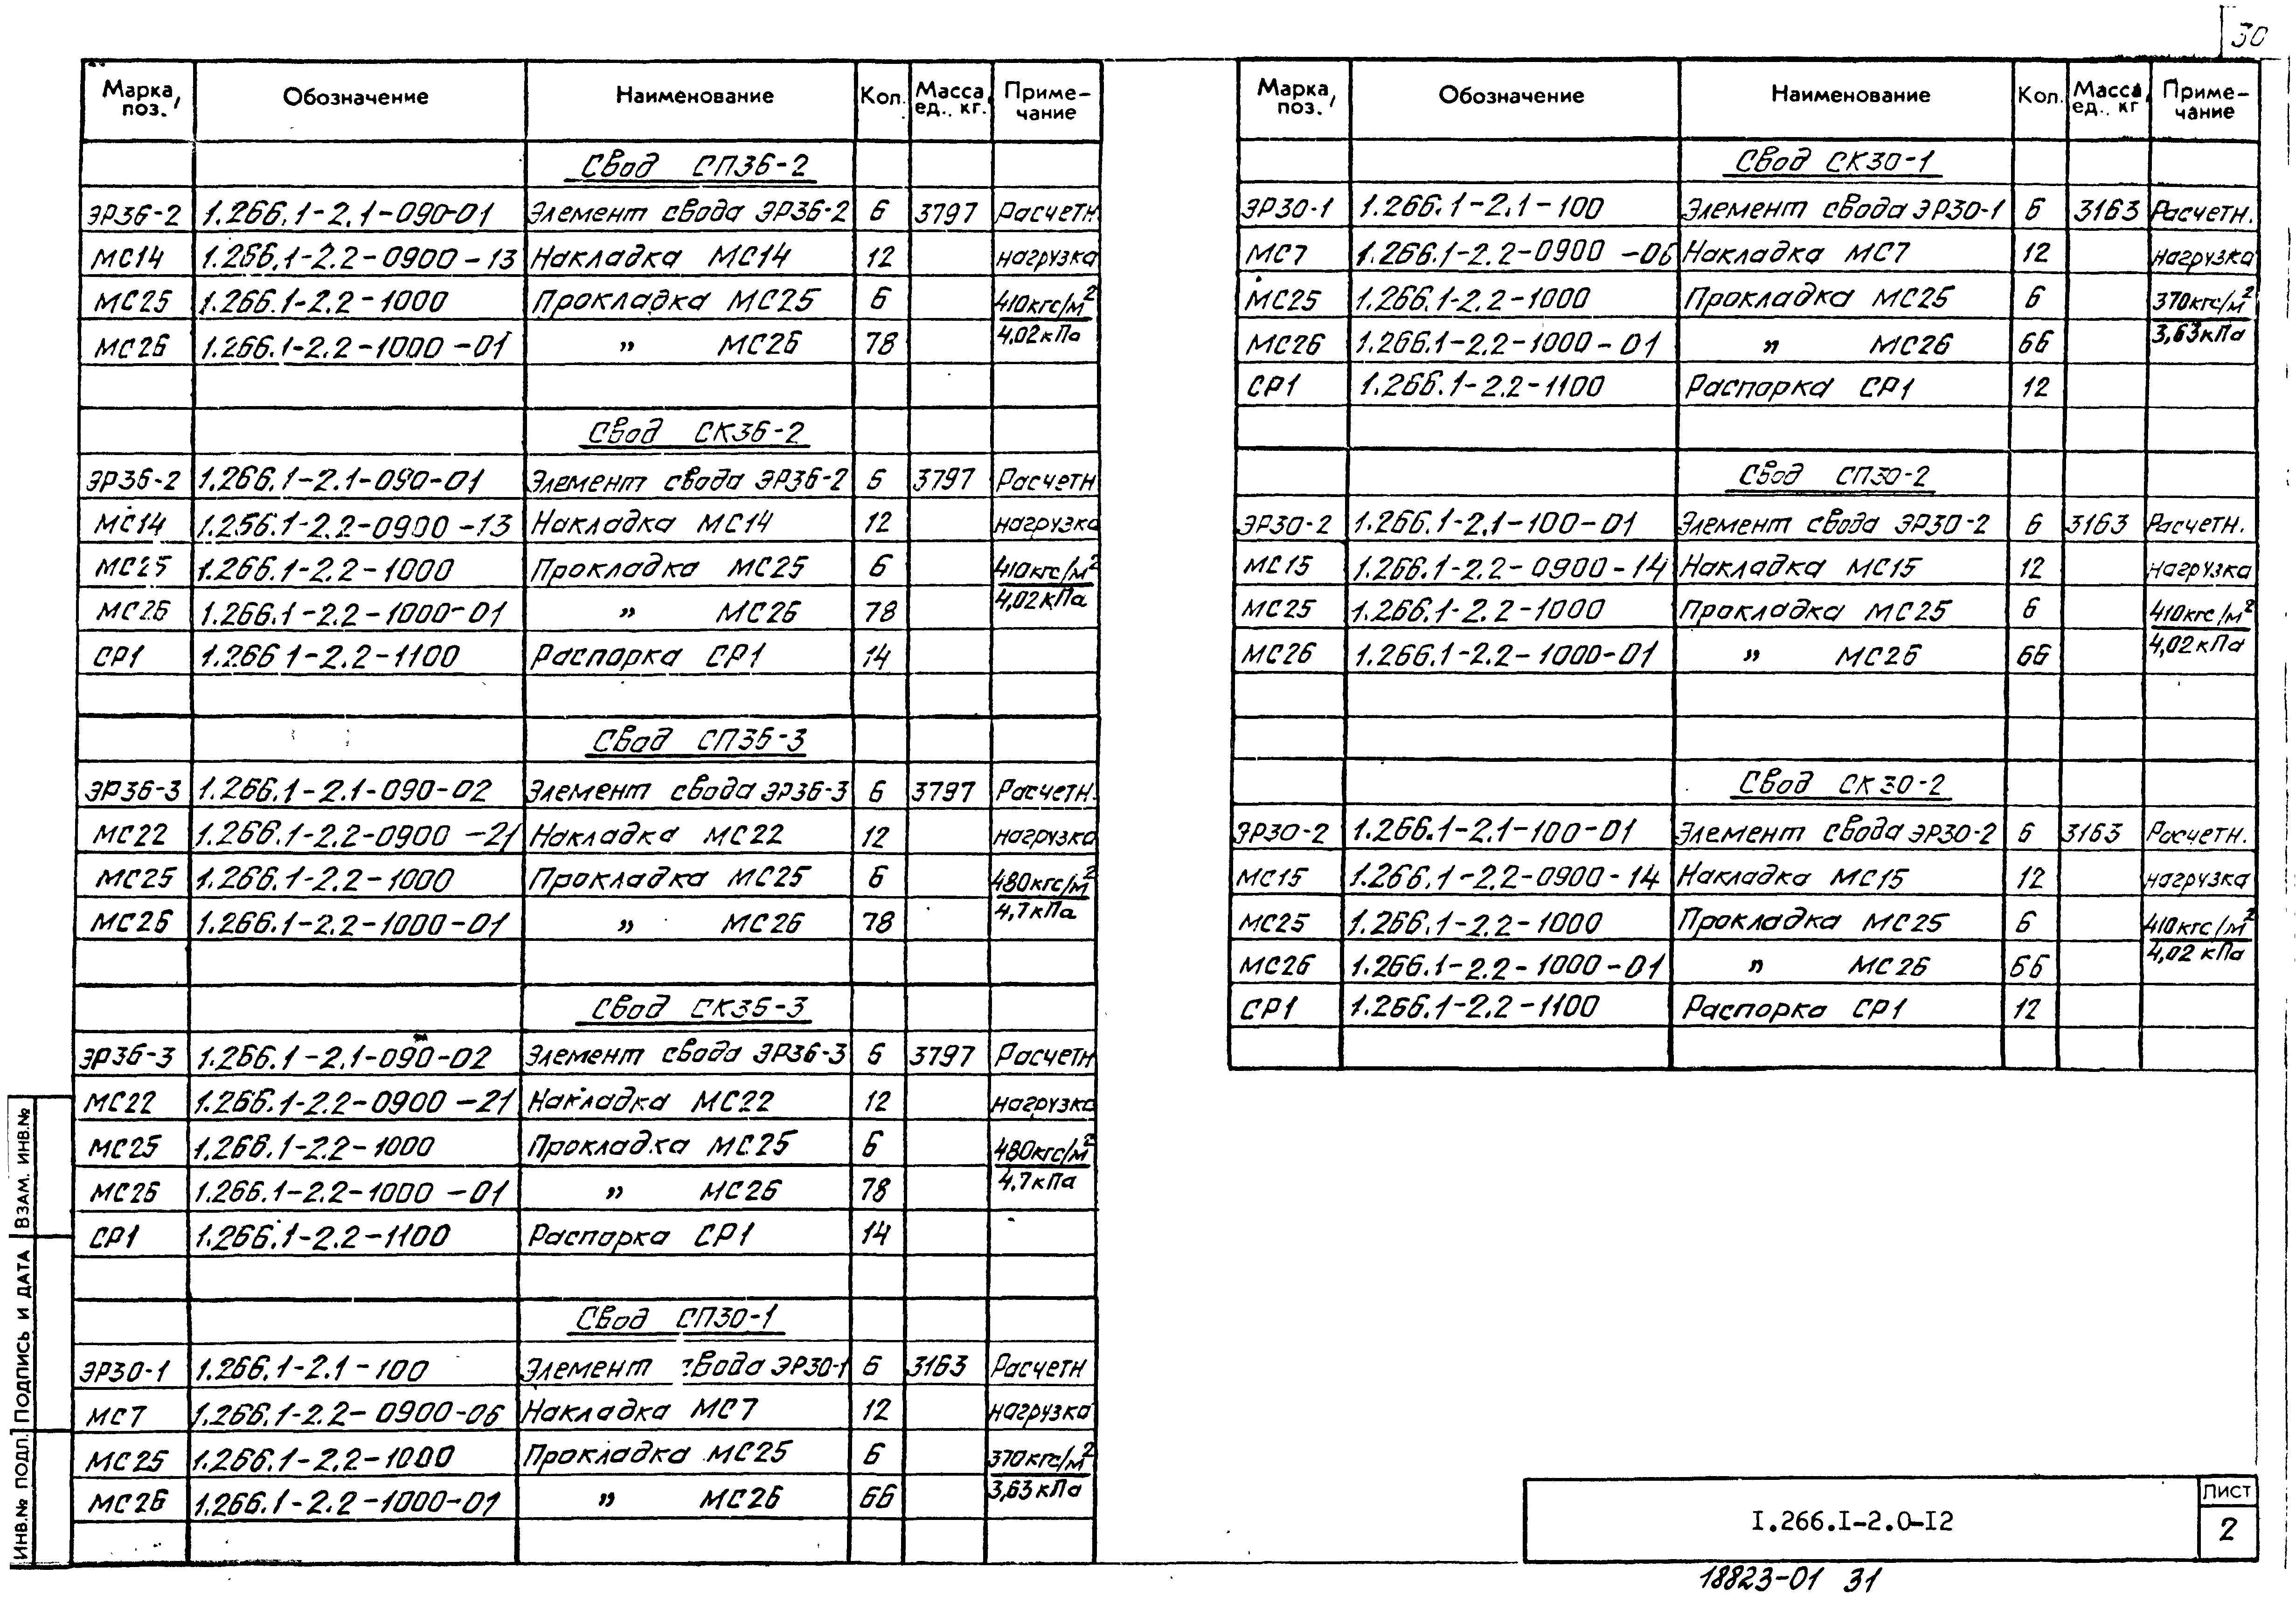 30
Марка, поз. Обозначение Наименование Кол. Масса ед., кг. Приме-чание
Свод СП36-2
ЭР36-2 1.266.1-2.1-090-01 Элемент свода ЭР36-2 6 3797 Расчетн.
МС14 1.266.1-2.2-0900-13 Накладка МС14 12 нагрузка
МС25 1.266.1-2.2-1000 Прокладка МС25 6 410кгс/м²
МС26 1.266.1-2.2-1000-01 " МС26 78 4,02кПа
Свод СК36-2
ЭР36-2 1.266.1-2.1-090-01 Элемент свода ЭР36-2 6 3797 Расчетн
МС14 1.256.1-2.2-0900-13 Накладка МС14 12 нагрузка
МС25 1.266.1-2.2-1000 Прокладка МС25 6 410кгс/м²
МС26 1.266.1-2.2-1000-01 " МС26 78 4,02кПа
СР1 1.266 1-2.2-1100 Распорка СР1 14
Свод СП36-3
ЭР36-3 1.266.1-2.1-090-02 Элемент свода ЭР36-3 6 3797 Расчетн.
МС22 1.266.1-2.2-0900-21 Накладка МС22 12 нагрузка
МС25 1.266.1-2.2-1000 Прокладка МС25 6 480кгс/м²
МС26 1.266.1-2.2-1000-01 " МС26 78 4,7кПа
Свод СК36-3
ЭР36-3 1.266.1-2.1-090-02 Элемент свода ЭР36-3 6 3797 Расчетн
МС22 1.266.1-2.2-0900-21 Накладка МС22 12 нагрузка
МС25 1.266.1-2.2-1000 Прокладка МС25 6 480кгс/м²
МС26 1.266.1-2.2-1000-01 " МС26 78 4,7кПа
СР1 1.266.1-2.2-1100 Распорка СР1 14
Свод СП30-1
ЭР30-1 1.266.1-2.1-100 Элемент свода ЭР30-1 6 3163 Расчетн
МС7 1.266.1-2.2-0900-06 Накладка МС7 12 нагрузка
МС25 1.266.1-2.2-1000 Прокладка МС25 6 370кгс/м²
МС26 1.266.1-2.2-1000-01 " МС26 66 3,63кПа
Марка, поз. Обозначение Наименование Кол. Масса ед., кг Приме-чание
Свод СК30-1
ЭР30-1 1.266.1-2.1-100 Элемент свода ЭР30-1 6 3163 Расчетн.
МС7 1.266.1-2.2-0900-06 Накладка МС7 12 нагрузка
МС25 1.266.1-2.2-1000 Прокладка МС25 6 370кгс/м²
МС26 1.266.1-2.2-1000-01 " МС26 66 3,63кПа
СР1 1.266.1-2.2-1100 Распорка СР1 12
Свод СП30-2
ЭР30-2 1.266.1-2.1-100-01 Элемент свода ЭР30-2 6 3163 Расчетн.
МС15 1.266.1-2.2-0900-14 Накладка МС15 12 нагрузка
МС25 1.266.1-2.2-1000 Прокладка МС25 6 410кгс/м²
МС26 1.266.1-2.2-1000-01 " МС26 66 4,02кПа
Свод СК30-2
ЭР30-2 1.266.1-2.1-100-01 Элемент свода ЭР30-2 6 3163 Расчетн.
МС15 1.266.1-2.2-0900-14 Накладка МС15 12 нагрузка
МС25 1.266.1-2.2-1000 Прокладка МС25 6 410кгс/м²
МС26 1.266.1-2.2-1000-01 " МС26 66 4,02 кПа
СР1 1.266.1-2.2-1100 Распорка СР1 12
ИНВ.№ ПОДЛ. ПОДПИСЬ И ДАТА ВЗАМ. ИНВ.№
I.266.I-2.0-I2
Лист
2
18823-01 31